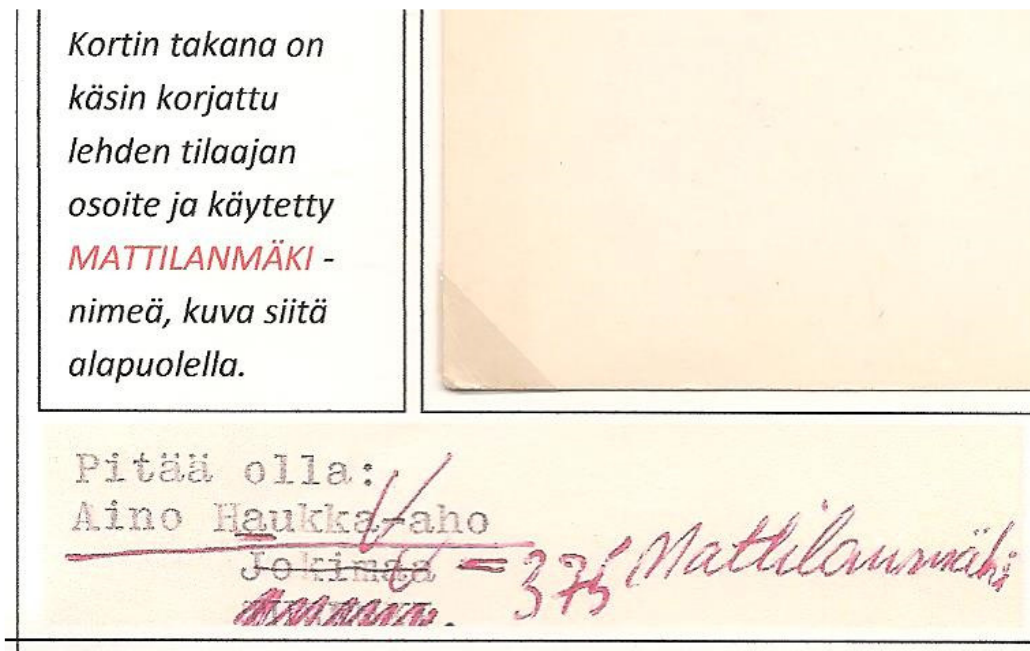 Kortin takana on
käsin korjattu
lehden tilaajan
osoite ja käytetty
MATTILANMÄKI -
nimeä, kuva siitä
alapuolella.
Pitää olla:
Aino Haukka-aho
Jokimaa = 375 Mattilanmäki